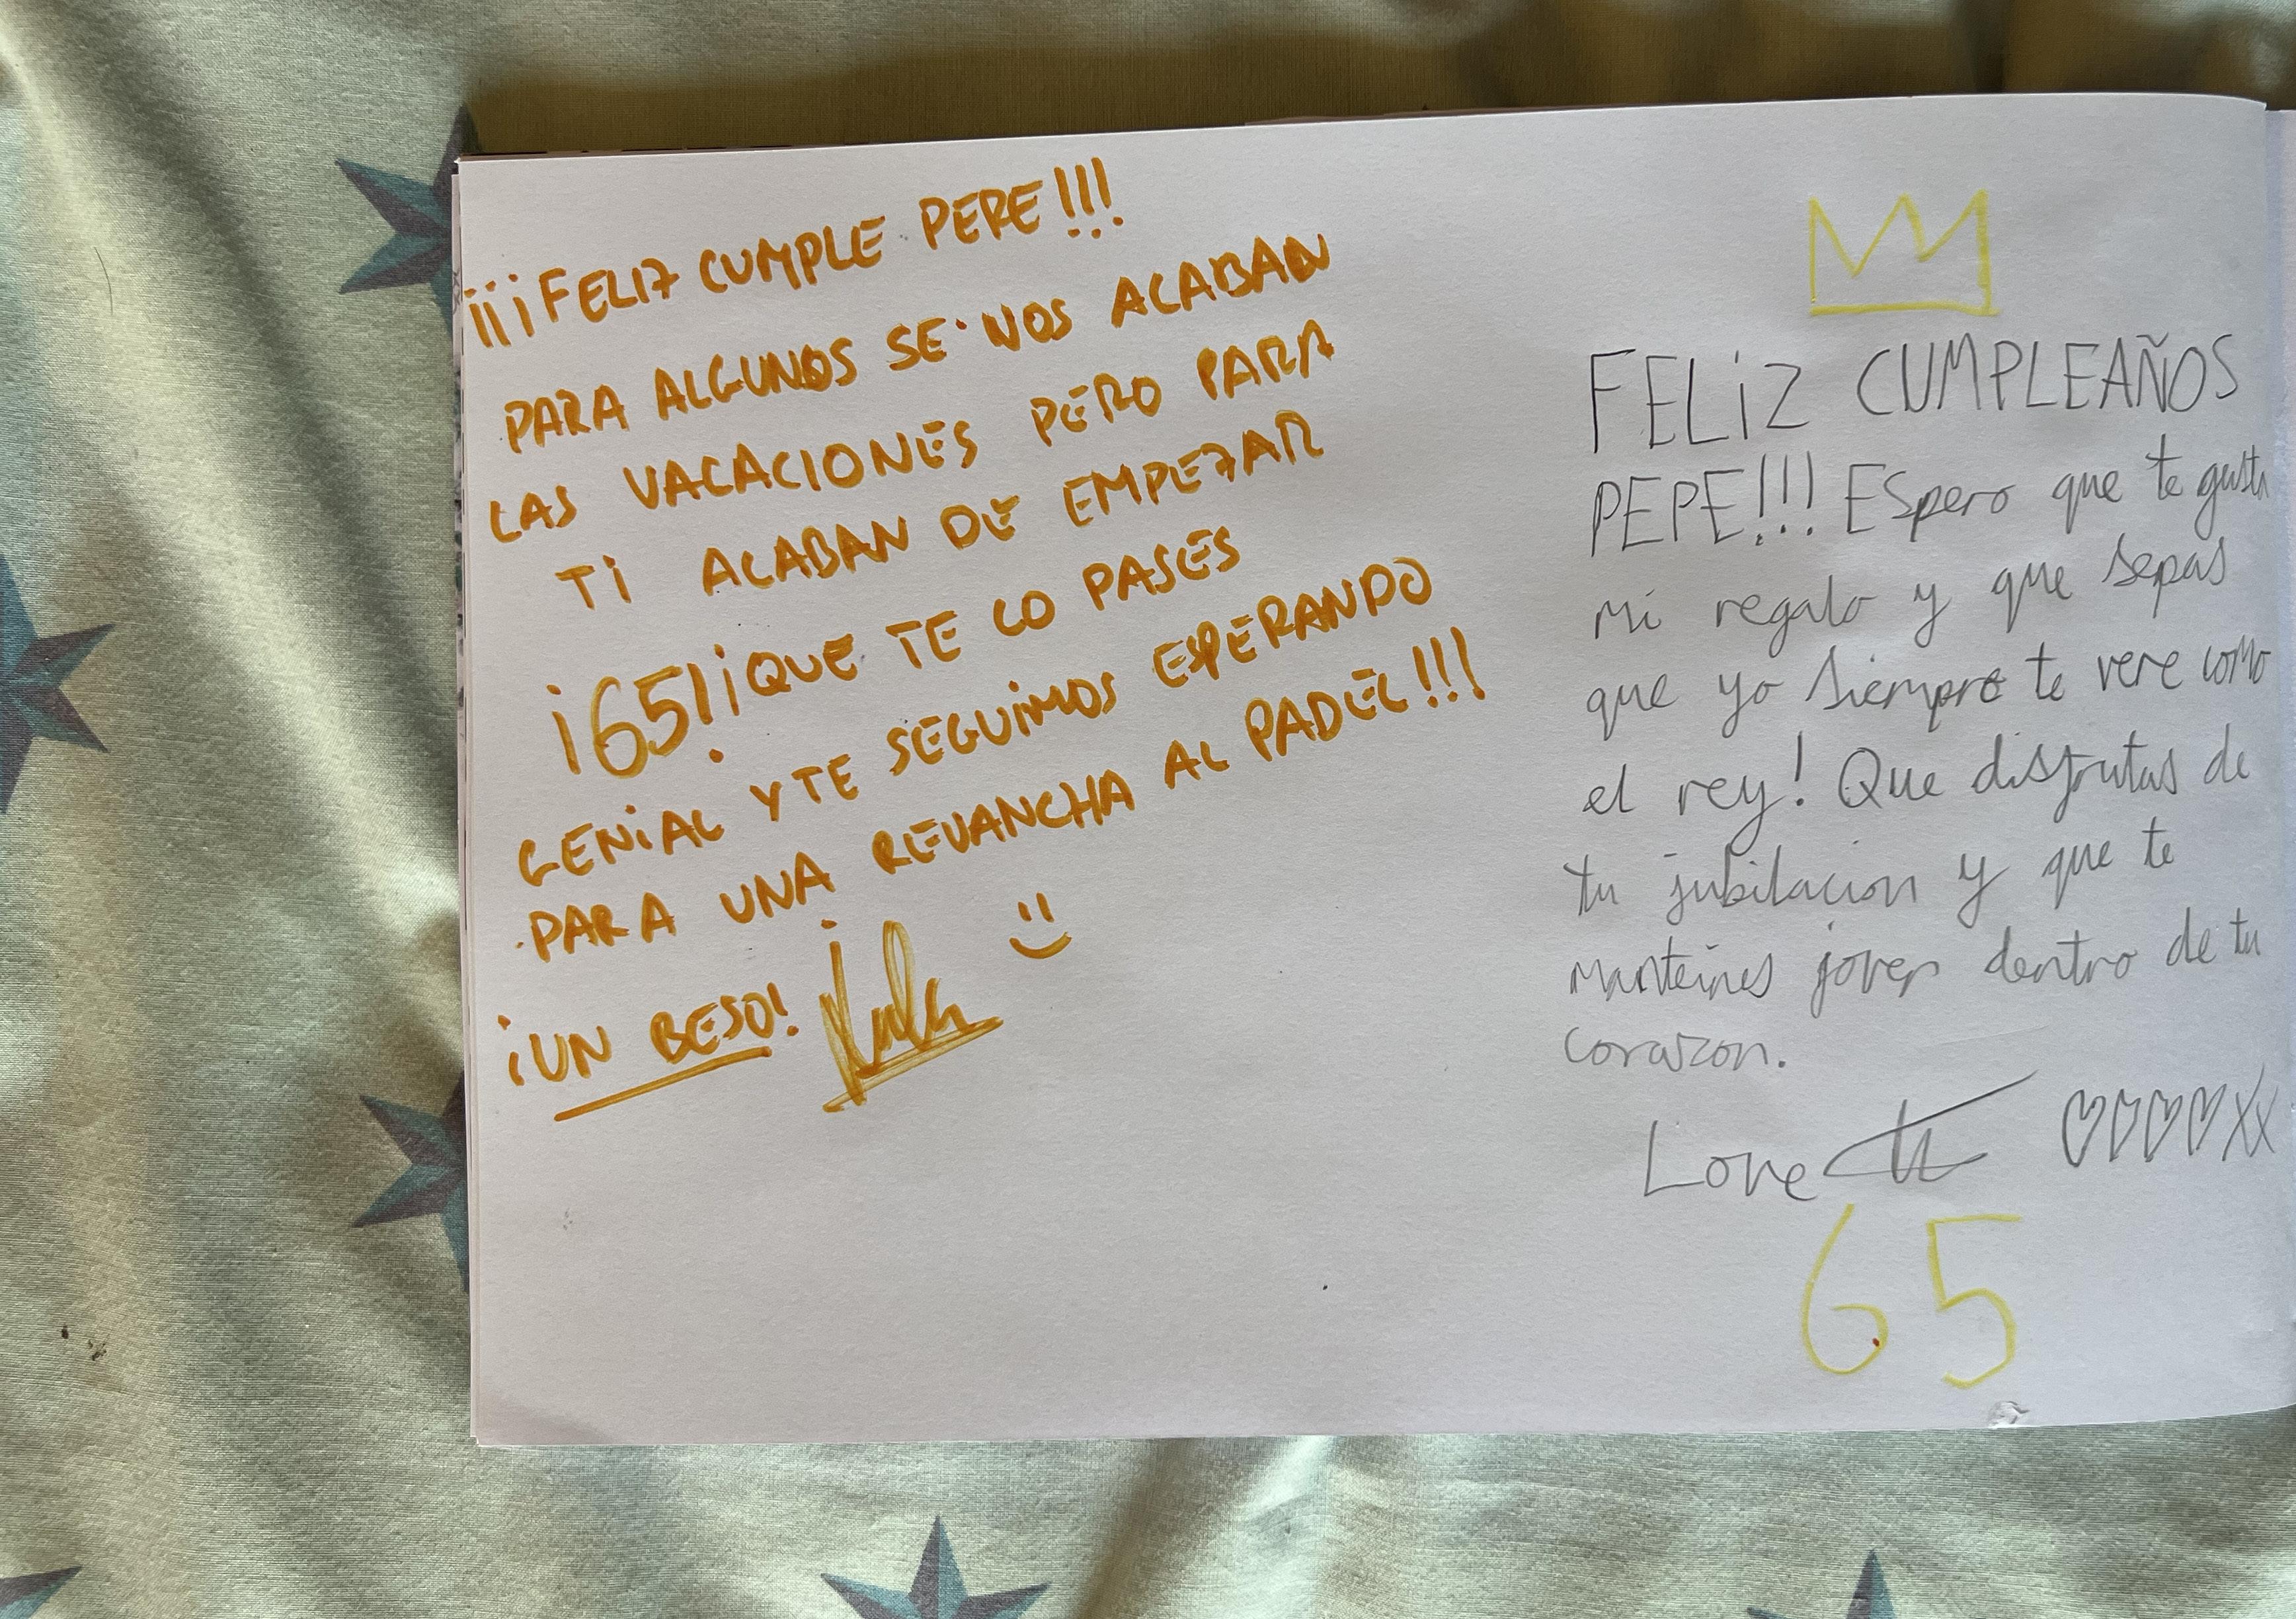 ¡¡¡FELIZ CUMPLE PEPE!!!
PARA ALGUNOS SE NOS ACABAN
LAS VACACIONES PERO PARA
TI ACABAN DE EMPEZAR
¡65! ¡QUE TE LO PASES
GENIAL Y TE SEGUIMOS ESPERANDO
PARA UNA REVANCHA AL PADEL!!!
¡UN BESO!
FELIZ CUMPLEAÑOS
PEPE!!! Espero que te gusta
mi regalo y que sepas
que yo siempre te vere como
el rey! Que disfrutas de
tu jubilacion y que te
manteines joven dentro de tu
corazon.
Love
65